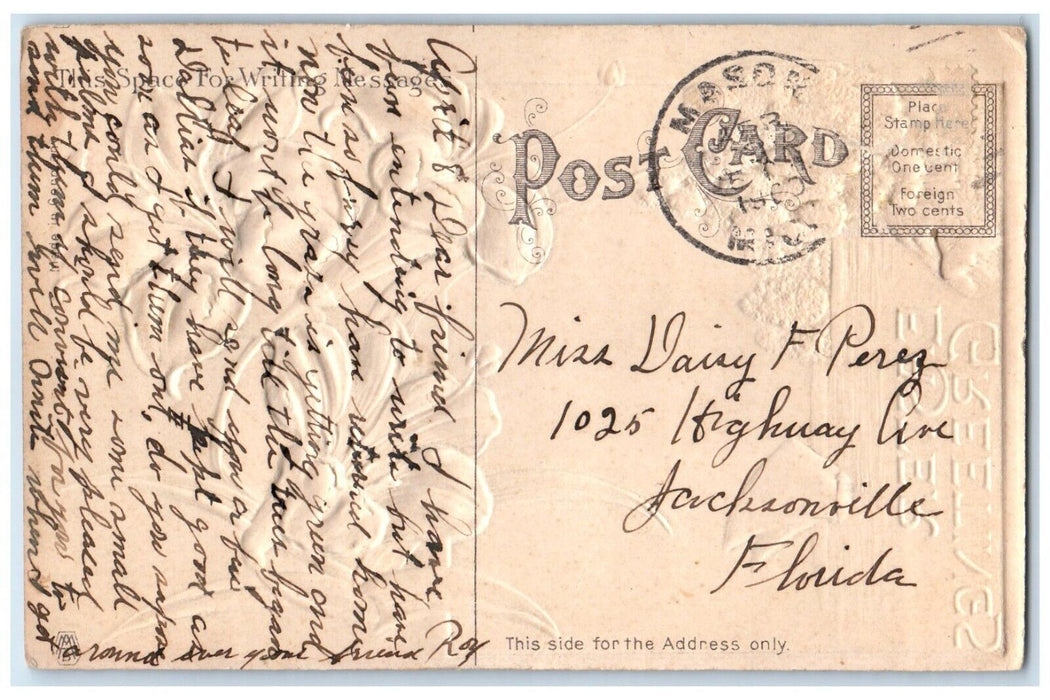 This Space For Writing Messages
April 8 Dear friend I have
been entending to write but have
ben so busy have returned home
now the grass is getting green and
it wont be long till the
be I will send you a few
Dallias if they have kept good as
soon as I get them out, do you supose
you could send me some small
palms I should be very pleased
with them if Convenient for you to
send them will Omite when I get
around ever your friend Roy
POST CARD
MASON
MICH
Place
Stamp Here
Domestic
One cent
Foreign
Two cents
Miss Daisy F Perez
1025 Highway Ave
Jacksonville
Florida
GREETINGS
This side for the Address only.